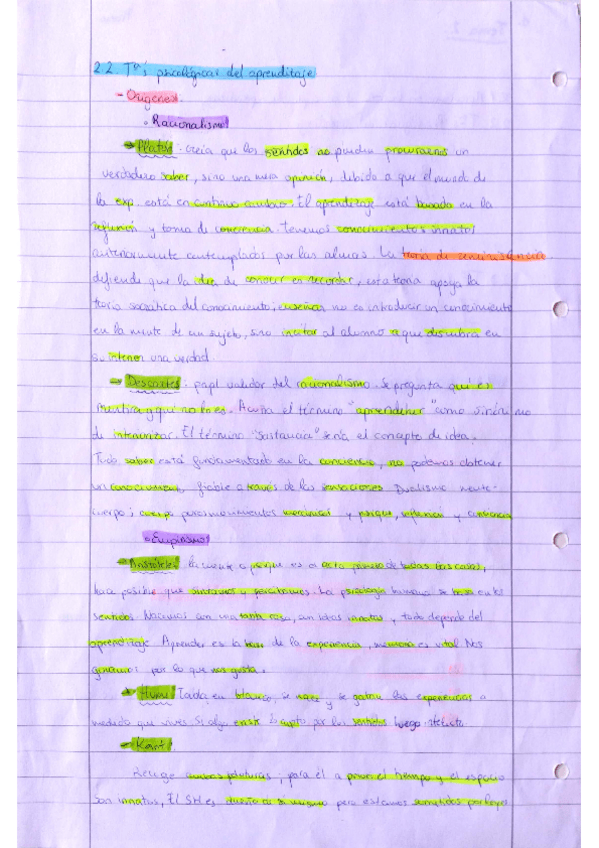 2.2. Tªs psicológicas del aprendizaje
- Orígenes
Racionalismo
→ Platón: creía que los sentidos no podían proporcionarnos un
verdadero saber, sino una mera opinión, debido a que el mundo de
la exp. está en continuo cambio. El aprendizaje está basado en la
reflexión y toma de conciencia. Tenemos conocimientos innatos
anteriormente contemplados por las almas. La teoría de reminiscencia
defiende que la idea de conocer es recordar, esta teoría apoya la
teoría socrática del conocimiento, enseñar no es introducir un conocimiento
en la mente de un sujeto, sino incitar al alumno a que descubra en
su interior una verdad.
→ Descartes: papel valedor del racionalismo. Se pregunta qué es
mentira y qué no lo es. Acuña el término "aprendeher" como sinónimo
de interiorizar. El término "sustancia" sería el concepto de idea.
Todo saber está fundamentado en la conciencia, no podemos obtener
un conocimiento fiable a través de las sensaciones. Dualismo mente-
cuerpo; cuerpo para movimientos mecánicos y psique, reflexión y conciencia
Empirismo
→ Aristóteles: psique es el acto primero de todas las cosas,
hace posible que sintamos y percibamos. La psicología humana se basa en los
sentidos. Nacemos con una tabla rasa, sin ideas innatas, todo depende del
aprendizaje. Aprender es la base de la experiencia, memoria es vital. Nos
guiamos por lo que nos gusta.
→ Hume: Tabla en blanco, se nace y se graban las experiencias a
medida que vives. Si algo existe lo capto por los sentidos luego
→ Kant:
Recoge ambas posturas, para él a priori el tiempo y el espacio
son innatos, El SH es dueño de sí mismo pero estamos sometidos por leyes